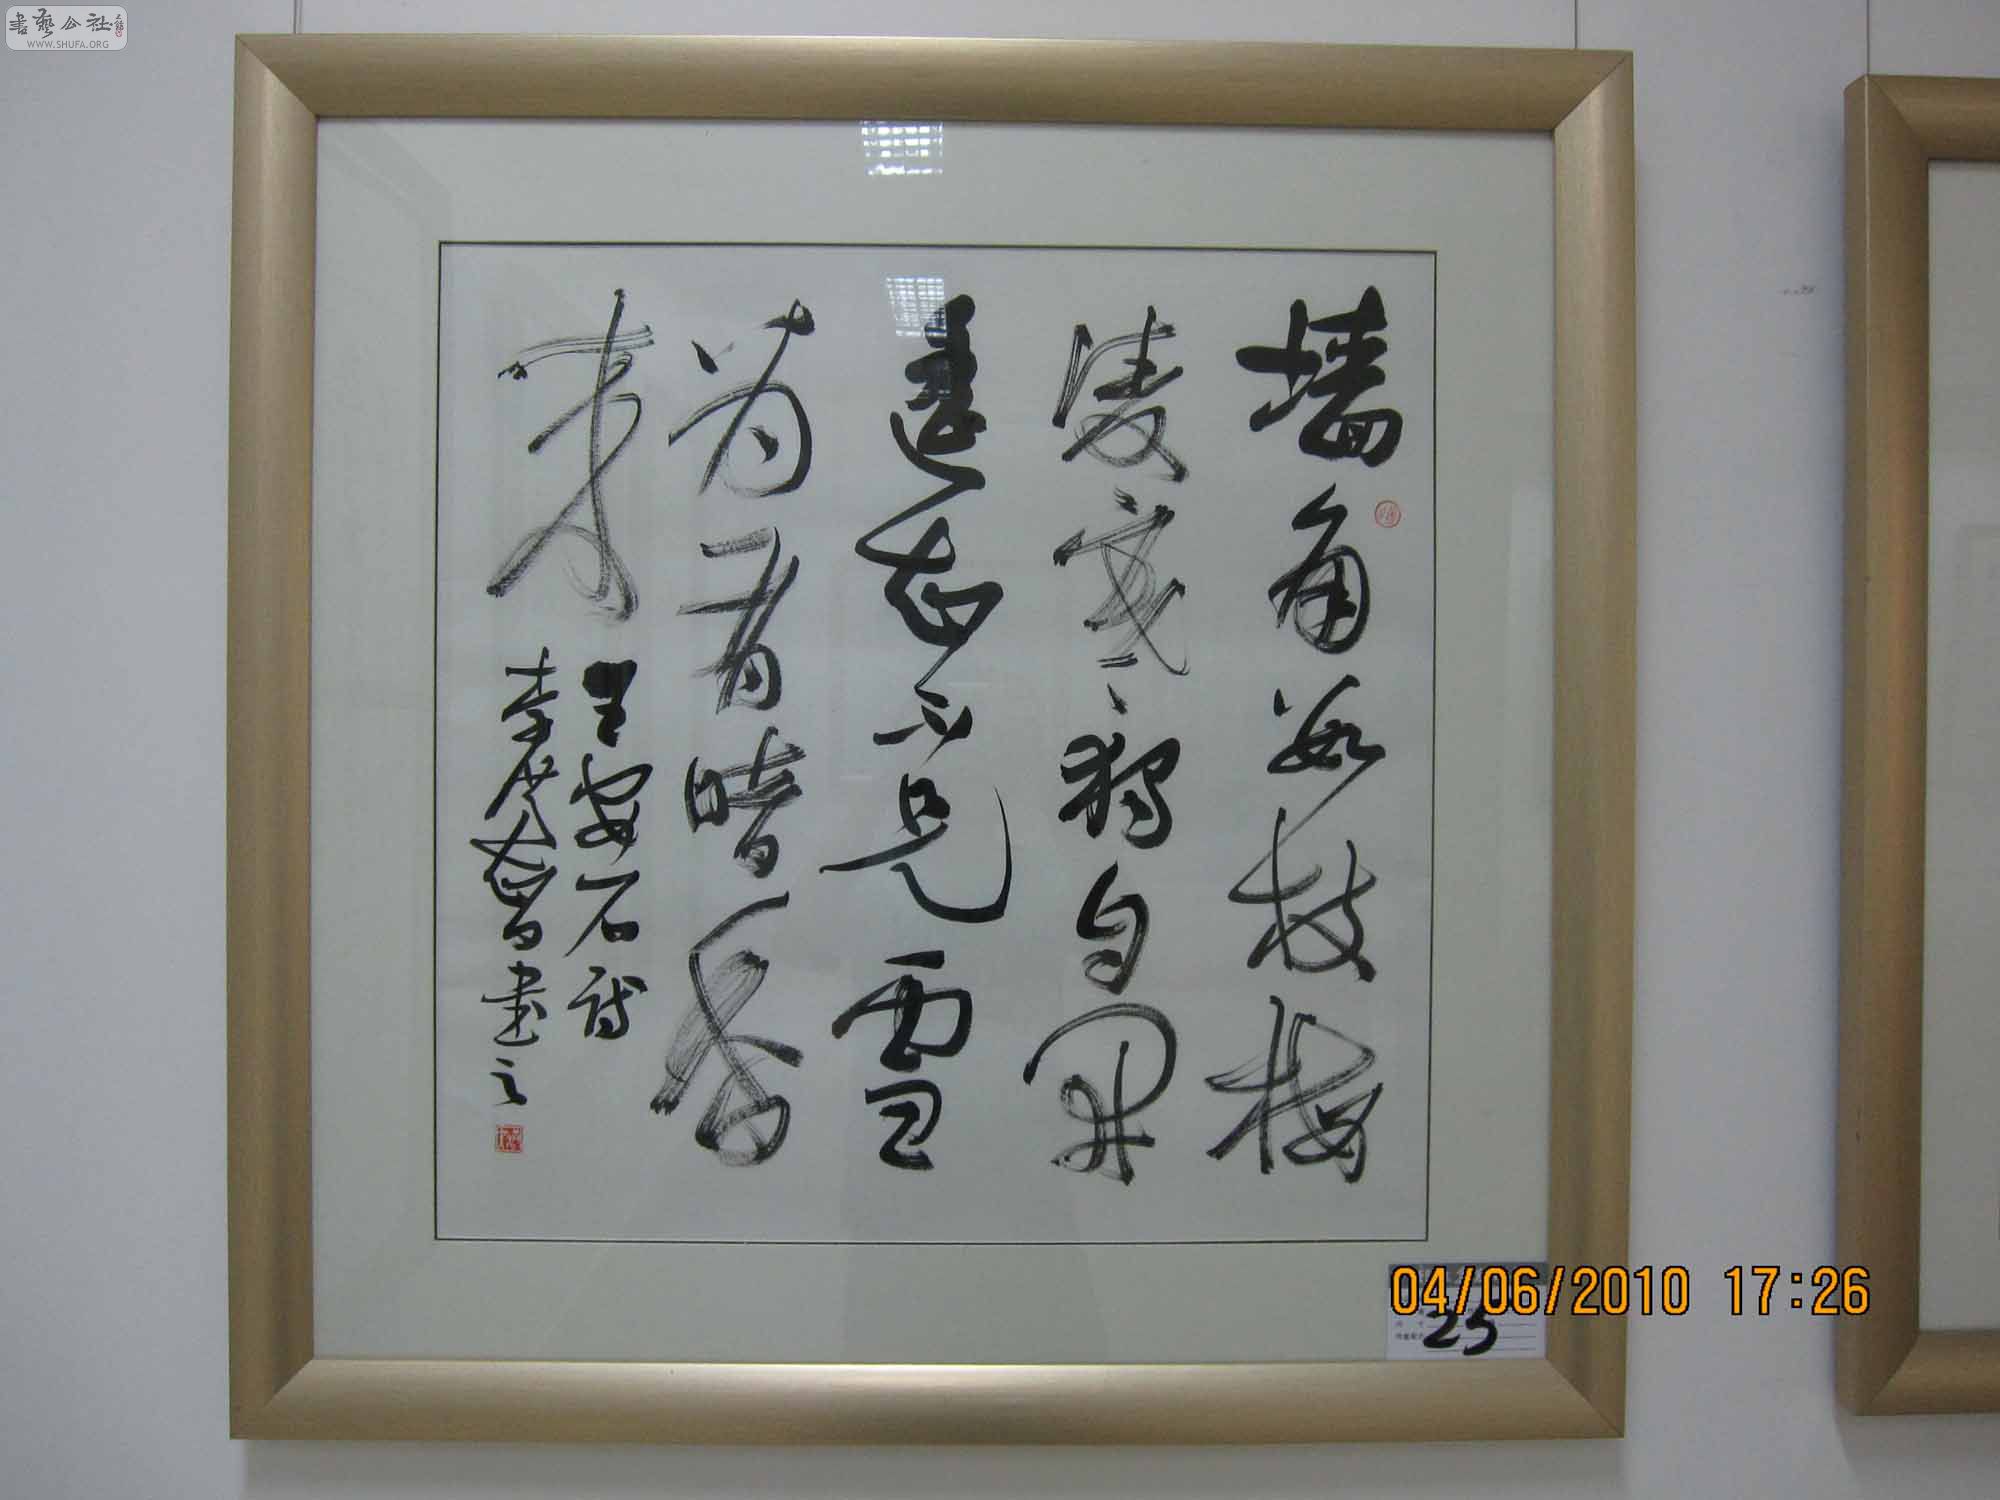 書藝公社
WWW.SHUFA.ORG
墙角数枝梅
凌寒独自開
遥知不是雪
为有暗香
来
王安石詩
李書之
04/06/2010 17:26
25